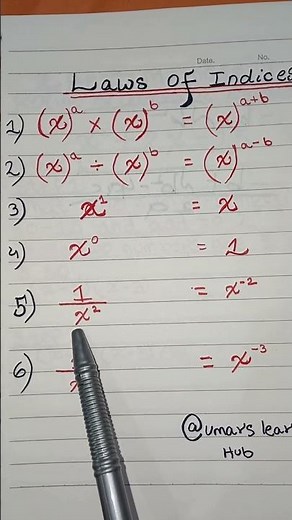 Date. No.
Laws of Indices
1) (x)ᵃ × (x)ᵇ = (x)ᵃ⁺ᵇ
2) (x)ᵃ ÷ (x)ᵇ = (x)ᵃ⁻ᵇ
3) x¹ = x
4) x⁰ = 1
5) 1/x² = x⁻²
6) = x⁻³
@umar's lear
Hub